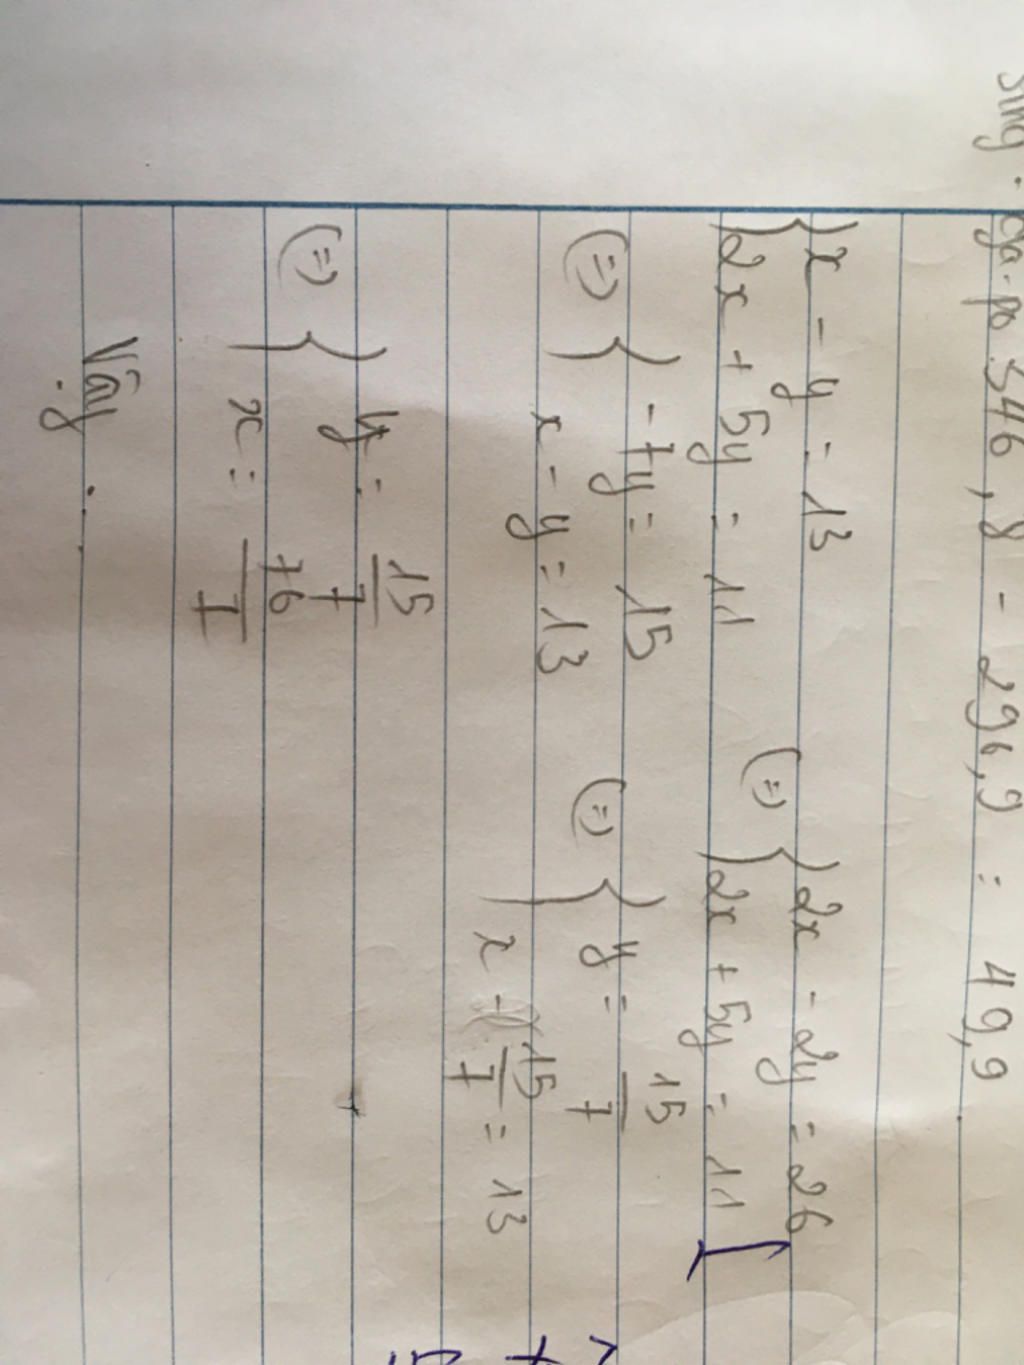 346,8 - 296,9 = 49,9
{ x - y = 13
2x + 5y = 11
(=) { 2x - 2y = 26
2x + 5y = 11
(=) { -7y = 15
x - y = 13
(=) { y = 15/7
x - 15/7 = 13
(=) { y = 15/7
x = 76/7
Vậy.